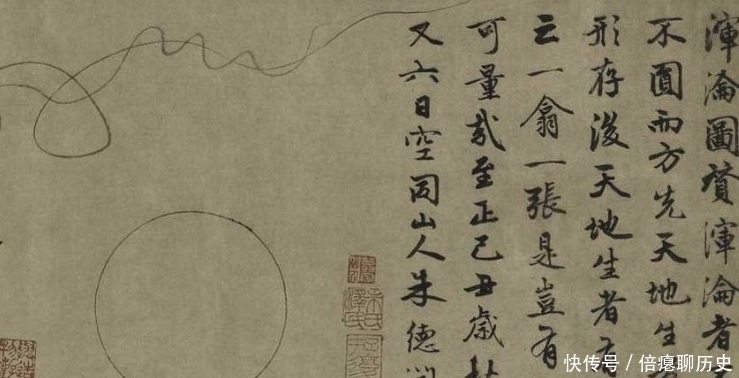 渾淪圖贊渾淪者
不圓而方先天地生
形存後天地生者
云一翕一張是豈有
可量哉至正己丑歲
又六日空同山人朱德
快传号 / 聊历史